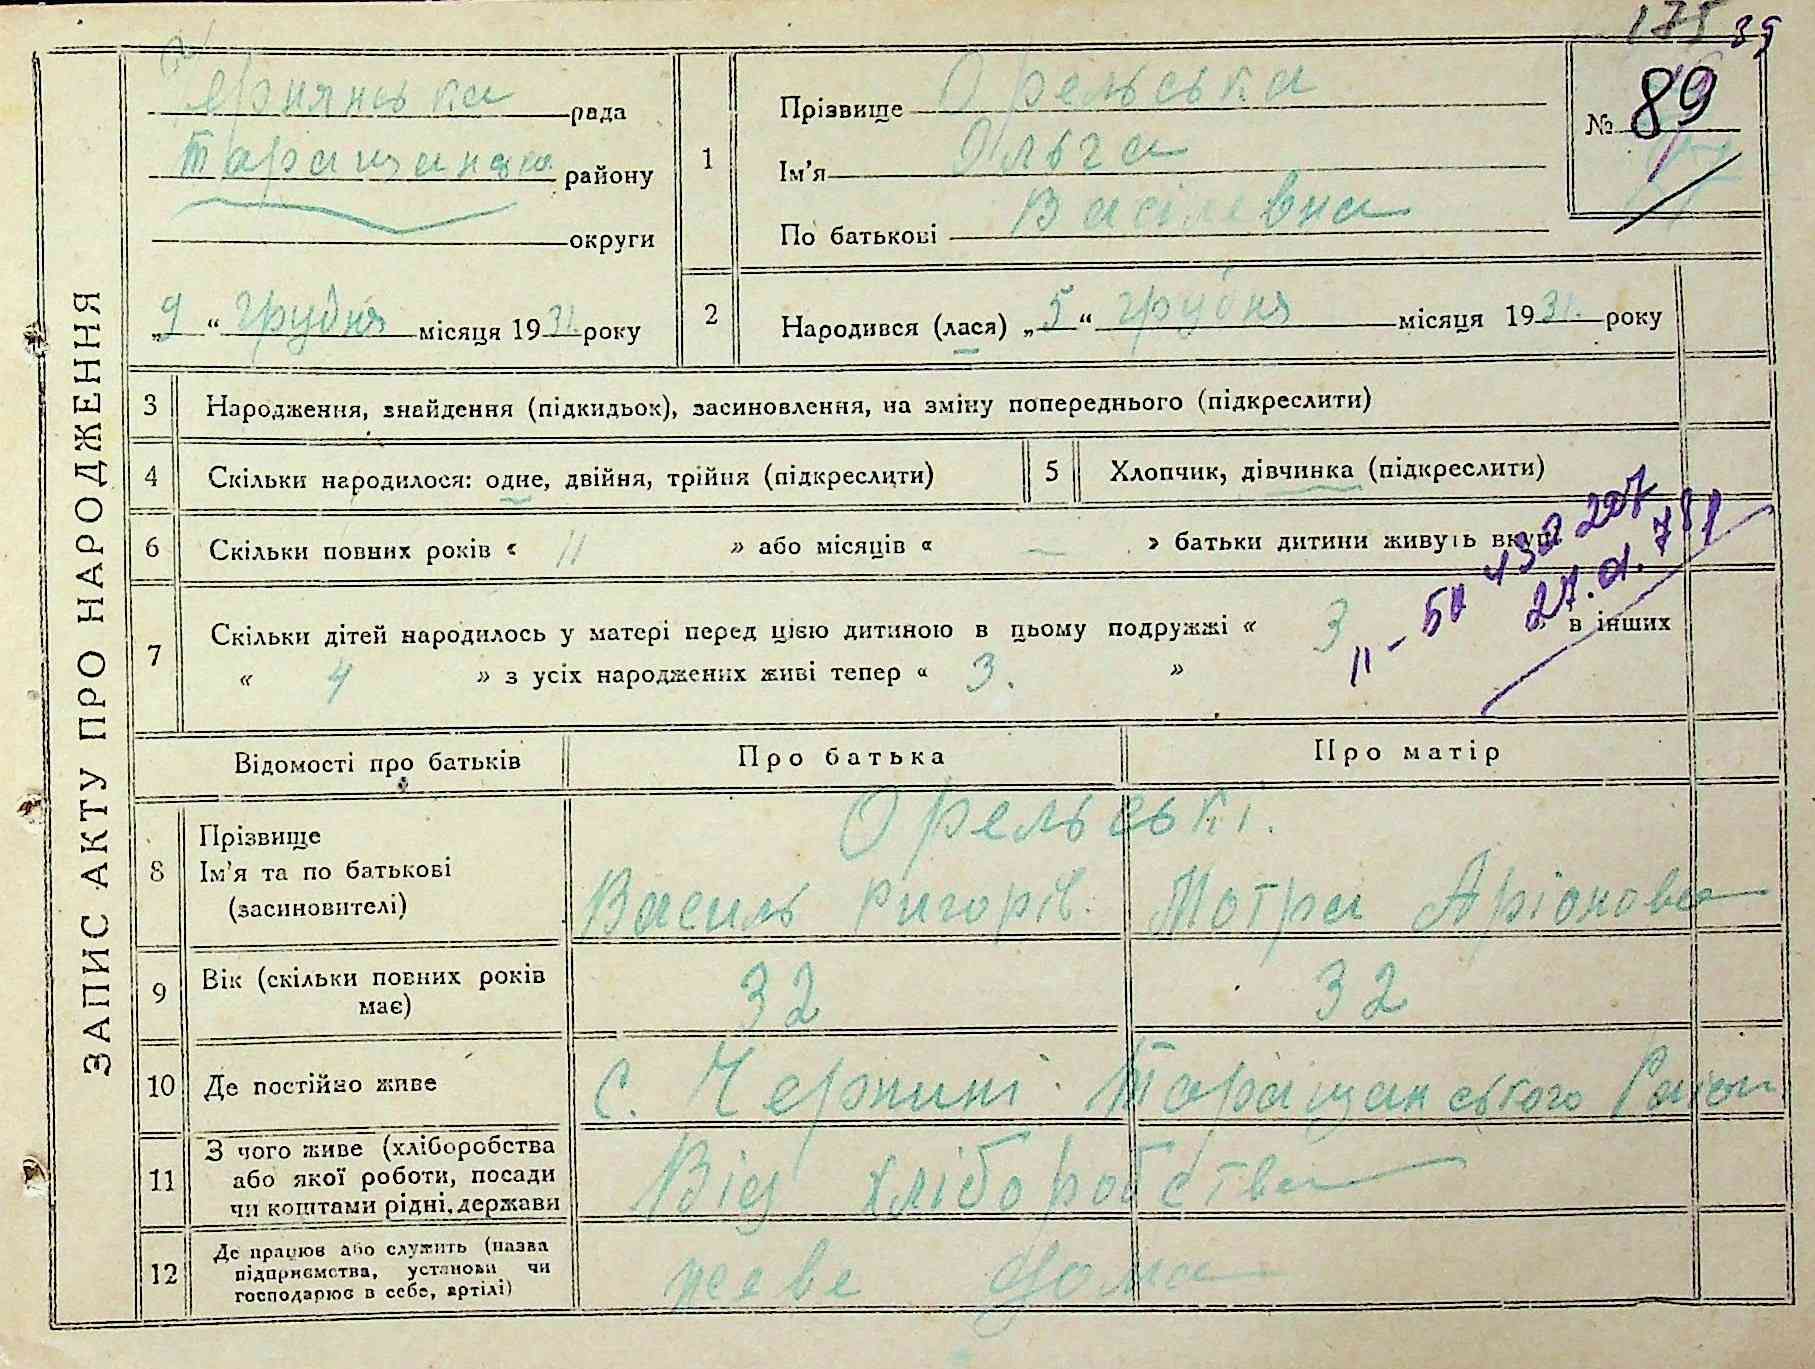 175 39
Чернянська рада
Таращанського району
округи
„9“ грудня місяця 1931 року
1
Прізвище Орельська
Ім'я Ольга
По батькові Васілевна
№ 89
2
Народився (лася) „5“ грудня місяця 1931. року
ЗАПИС АКТУ ПРО НАРОДЖЕННЯ
3 Народження, знайдення (підкидьок), засиновлення, на зміну попереднього (підкреслити)
4 Скільки народилося: одне, двійня, трійня (підкреслити)
5 Хлопчик, дівчинка (підкреслити)
6 Скільки повних років « 11 » або місяців « — » батьки дитини живуть вкупі
7 Скільки дітей народилось у матері перед цією дитиною в цьому подружжі « 3 в інших
« 4 » з усіх народжених живі тепер « 3. »
27.01.
Відомості про батьків Про батька Про матір
8 Прізвище
Ім'я та по батькові
(засиновителі)
Орельські.
Василь Григорів. Мотря Аріонова
9 Вік (скільки повних років
має)
32 32
10 Де постійно живе с. Чернині Таращанського Район
11 З чого живе (хліборобства
або якої роботи, посади
чи коштами рідні, держави
Від хліборобства
12 Де працює або служить (назва
підприємства, установи чи
господарює в себе, артілі)
жеве дома